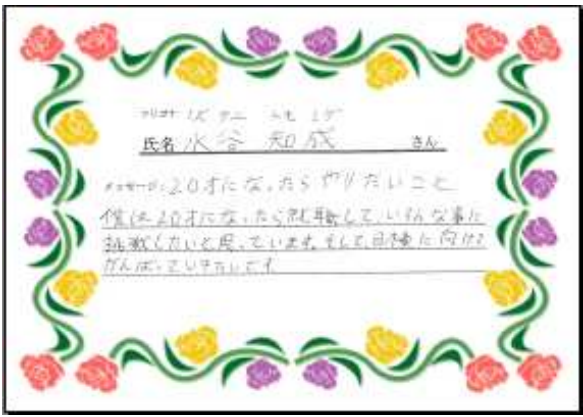 フリガナ ミズ タニ トモ ミチ
氏名 水谷 知成 さん
メッセージ:20才になったらやりたいこと
僕は20才になったら就職して、いろんな事に
挑戦したいと思っています。そして、目標に向けて
がんばっていきたいです